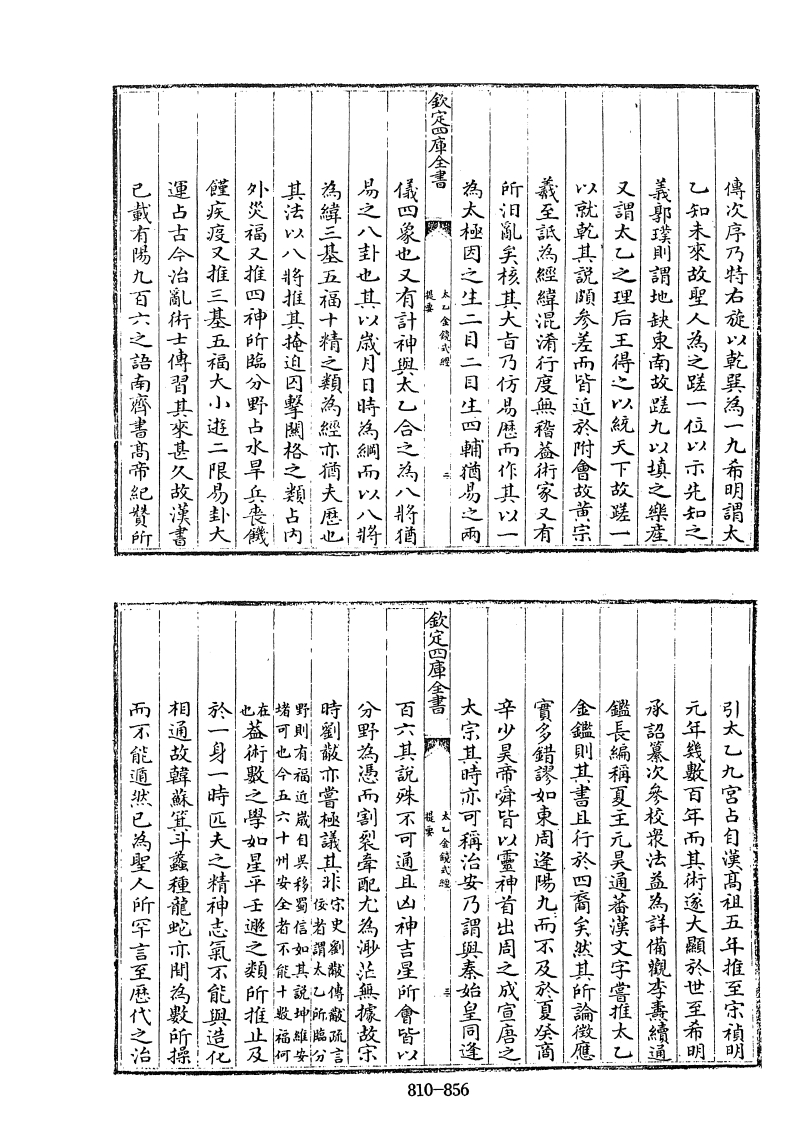 傳次序乃特右旋以乾巽為一九希明謂太
乙知未來故聖人為之蹉一位以示先知之
義郭璞則謂地缺東南故蹉九以填之樂産
又謂太乙之理后王得之以統天下故蹉一
以就乾其說頗參差而皆近於附會故黄宗
羲至詆為經緯混淆行度無稽葢術家又有
所汨亂矣核其大旨乃仿易歴而作其以一
為太極因之生二目二目生四輔猶易之兩
欽定四庫全書
太乙金鏡式經
提要
二
儀四象也又有計神與太乙合之為八將猶
易之八卦也其以嵗月日時為綱而以八將
為緯三基五福十精之類為經亦猶夫歴也
其法以八將推其掩迫囚擊關格之類占内
外災福又推四神所臨分野占水旱兵喪饑
饉疾疫又推三基五福大小遊二限易卦大
運占古今治亂術士傳習其來甚久故漢書
已載有陽九百六之語南齊書髙帝紀贊所
引太乙九宮占自漢髙祖五年推至宋禎明
元年幾數百年而其術遂大顯於世至希明
承詔纂次參校衆法益為詳備觀李燾續通
鑑長編稱夏主元昊通蕃漢文字嘗推太乙
金鑑則其書且行於四裔矣然其所論徴應
實多錯謬如東周逢陽九而不及於夏癸商
辛少昊帝舜皆以靈神首出周之成宣唐之
太宗其時亦可稱治安乃謂與秦始皇同逢
欽定四庫全書
太乙金鏡式經
提要
三
百六其說殊不可通且凶神吉星所會皆以
分野為憑而割裂牽配尤為渺茫無據故宋
時劉敞亦嘗極議其非宋史劉敞傳敞疏言
佞者謂太乙所臨分
野則有福近嵗自吳移蜀信如其說坤維安
堵可也今五六十州安全者不能十數福何
在
也葢術數之學如星平壬遯之類所推止及
於一身一時匹夫之精神志氣不能與造化
相通故韓蘇箕斗蠡種龍蛇亦間為數所操
而不能遁然已為聖人所罕言至歴代之治
810-856